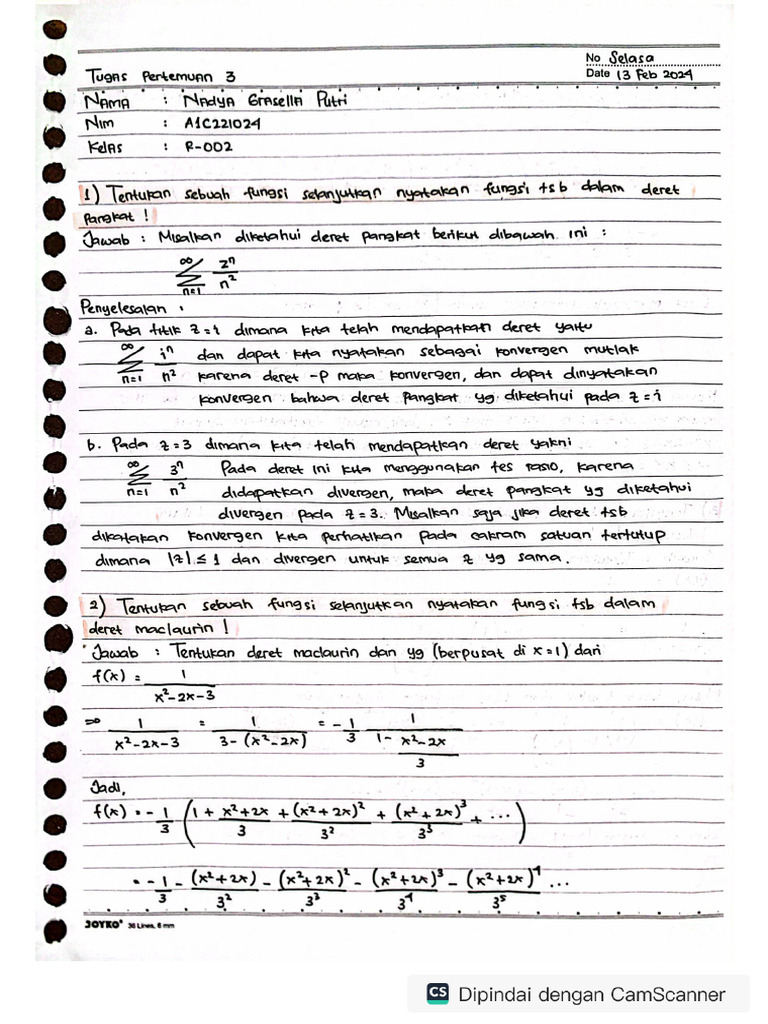 No Selasa
Date 13 Feb 2024
Tugas Pertemuan 3
NAMA : NAdyA GrAsellA Putri
Nim : A1C221024
Kelas : R-002
1) Tentukan sebuah fungsi selanjutkan nyatakan fungsi tsb dalam deret
pangkat !
Jawab : Misalkan diketahui deret pangkat berikut dibawah ini :
∞ Σ n=1 zⁿ/n²
Penyelesaian :
a. Pada titik z = i dimana kita telah mendapatkan deret yaitu
∞ Σ n=1 iⁿ/n² dan dapat kita nyatakan sebagai konvergen mutlak
karena deret -P maka konvergen, dan dapat dinyatakan
konvergen bahwa deret pangkat yg diketahui pada z = i
b. Pada z = 3 dimana kita telah mendapatkan deret yakni
∞ Σ n=1 3ⁿ/n² Pada deret ini kita menggunakan tes rasio, karena
didapatkan divergen, maka deret pangkat yg diketahui
divergen pada z = 3. Misalkan saja jika deret tsb
dikatakan konvergen kita perhatikan pada cakram satuan tertutup
dimana |z| ≤ 1 dan divergen untuk semua z yg sama.
2) Tentukan sebuah fungsi selanjutkan nyatakan fungsi tsb dalam
deret maclaurin !
Jawab : Tentukan deret maclaurin dan yg (berpusat di x = 1) dari
f(x) = 1/(x²-2x-3)
=> 1/(x²-2x-3) = 1/(3-(x²-2x)) = -1/3 1/(1-(x²-2x)/3)
Jadi,
f(x) = -1/3 (1 + (x²+2x)/3 + (x²+2x)²/3² + (x²+2x)³/3³ + ...)
= -1/3 - (x²+2x)/3² - (x²+2x)²/3³ - (x²+2x)³/3⁴ - (x²+2x)⁴/3⁵ ...
JOYKO 36 Lines, 6 mm
CS Dipindai dengan CamScanner